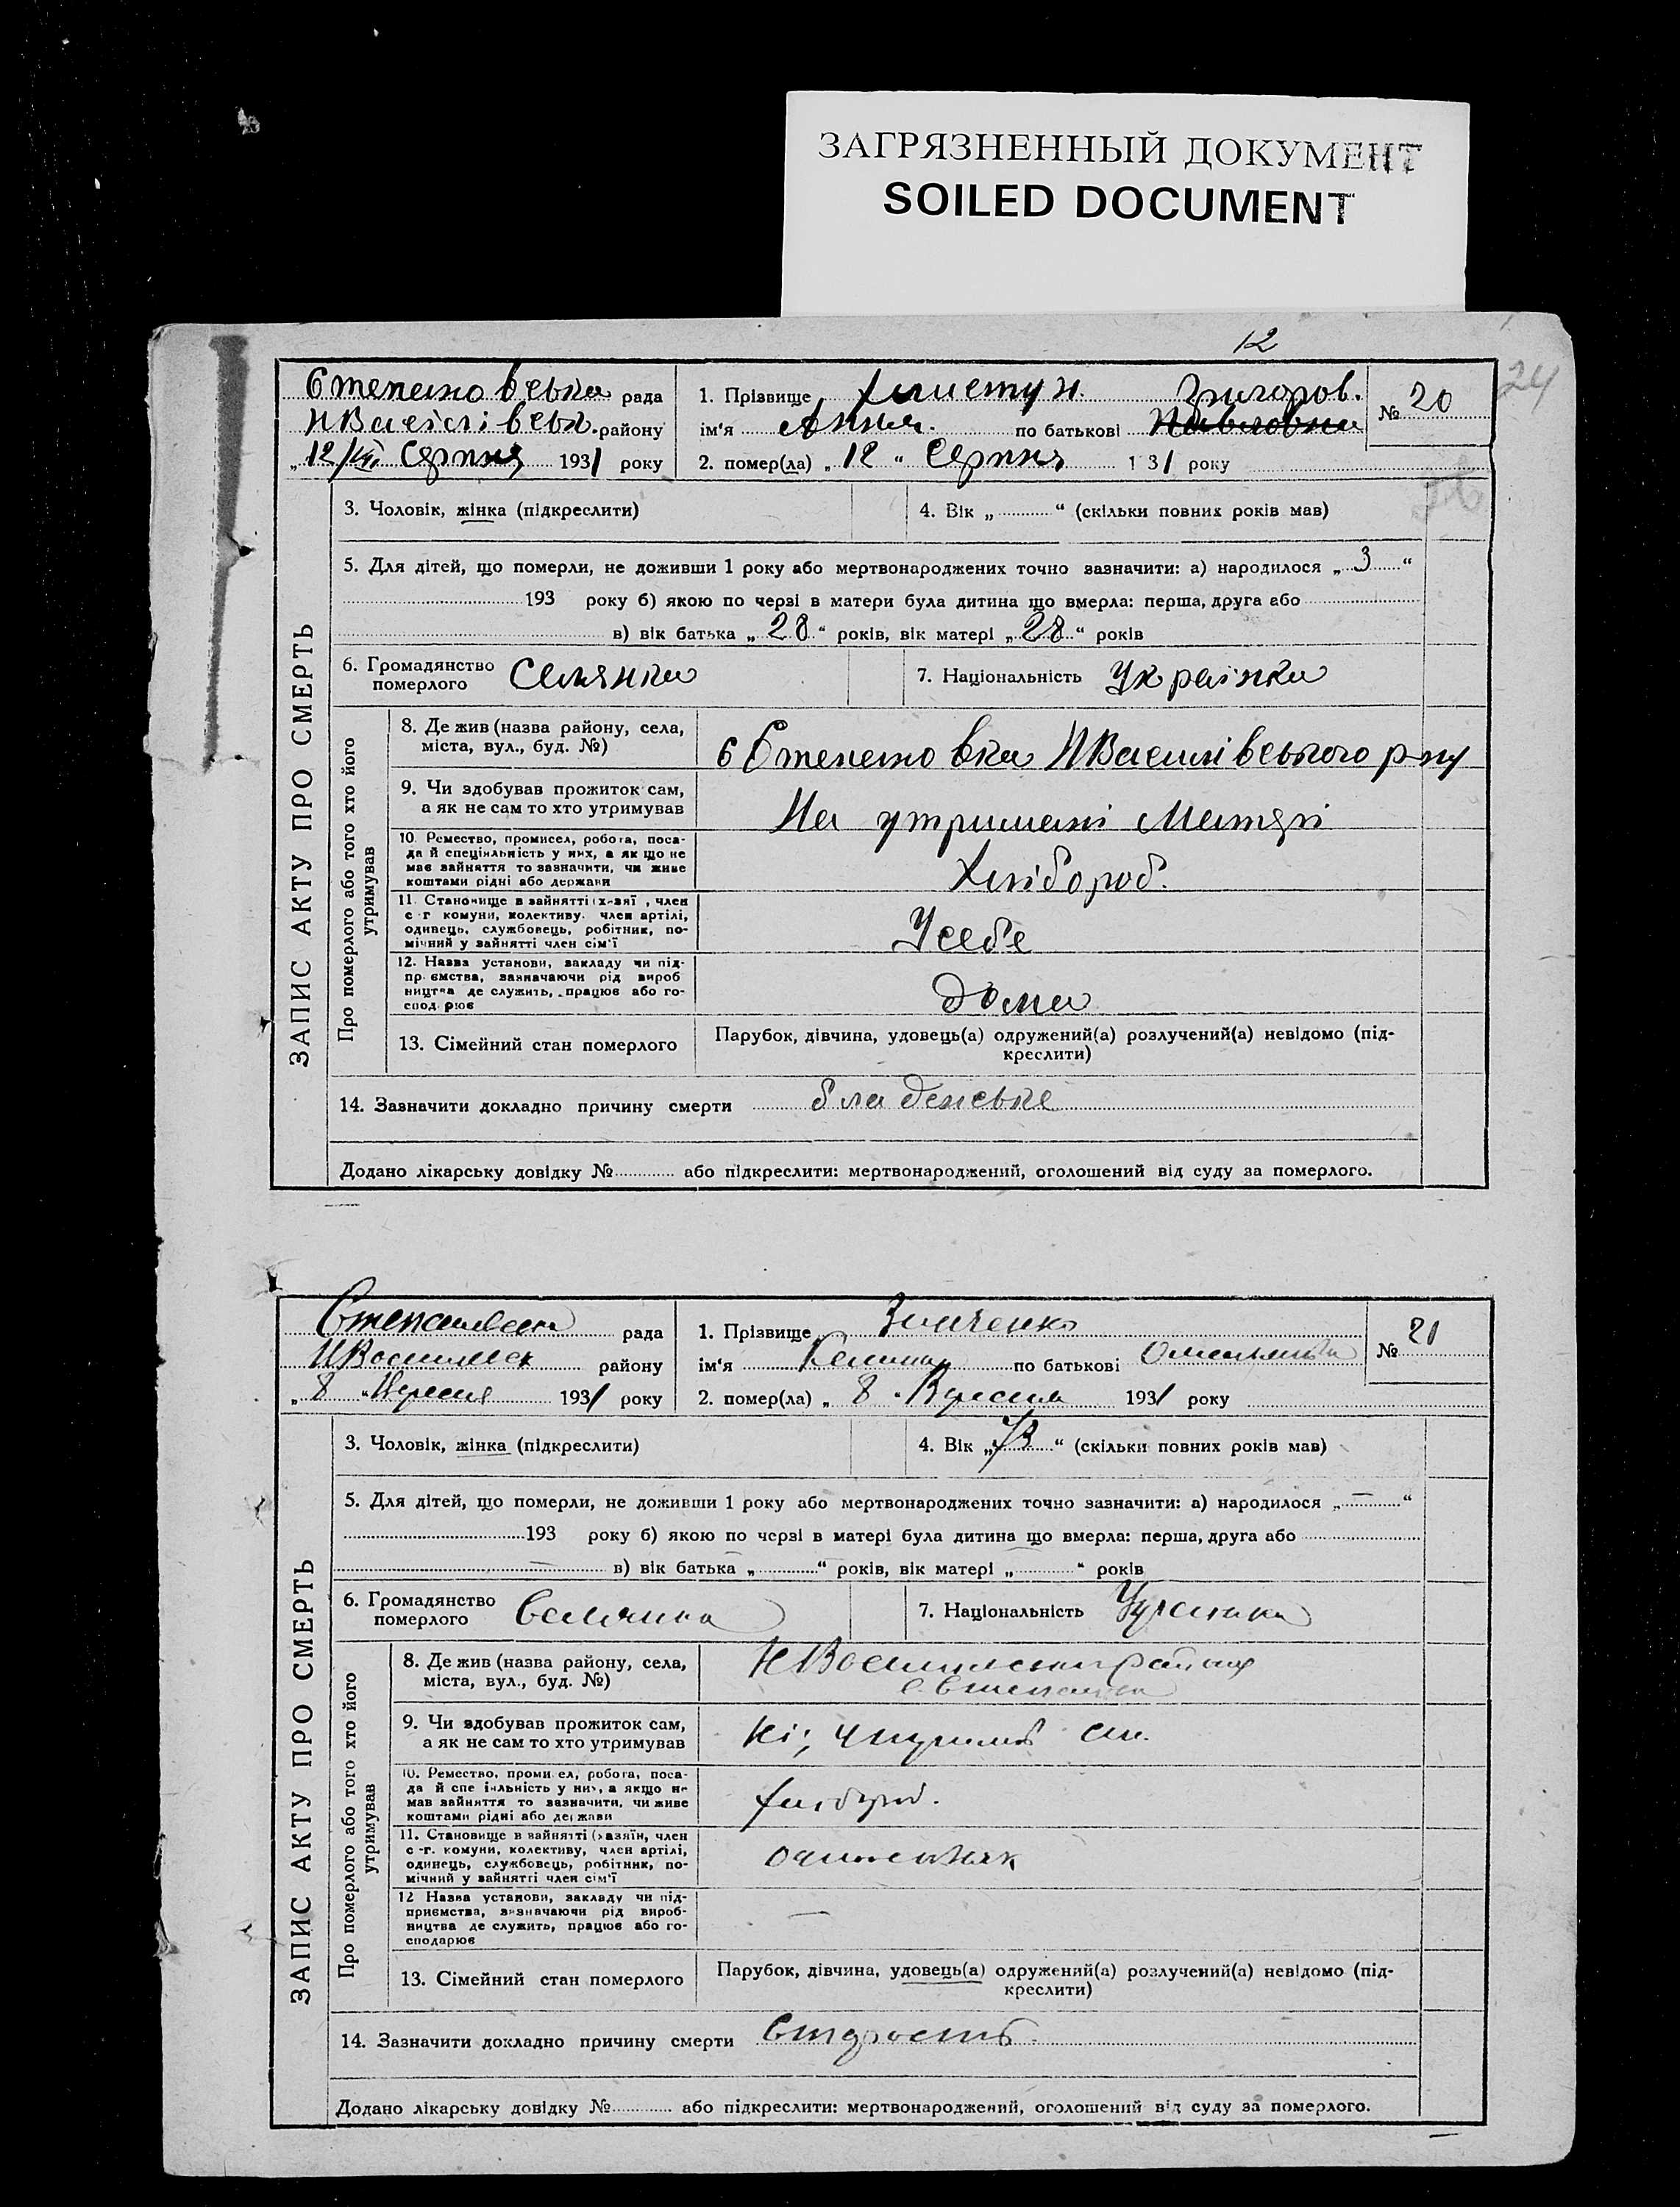 ЗАГРЯЗНЕННЫЙ ДОКУМЕНТ
SOILED DOCUMENT
12
24
Степановська рада
НВасилівськ. району
„ 12/VIII Серпня 1931 року
1. Прізвище Хлистун.
Григоров.
ім'я Анна. по батькові Павловна
№ 20
2. помер(ла) „ 12 “ Серпня 1 31 року
ЗАПИС АКТУ ПРО СМЕРТЬ
3. Чоловік, жінка (підкреслити)
4. Вік „ “ (скільки повних років мав)
5. Для дітей, що померли, не доживши 1 року або мертвонароджених точно зазначити: а) народилося „ 3 “
193 року б) якою по черзі в матери була дитина що вмерла: перша, друга або
в) вік батька „ 28 “ років, вік матері „ 28 “ років
6. Громадянство померлого Селянка
7. Національність Українка
Про померлого або того хто його утримував
8. Де жив (назва району, села,
міста, вул., буд. №)
с Степановка НВасилівського р-ну
9. Чи здобував прожиток сам,
а як не сам то хто утримував
На утримані Матері
10. Ремество, промисел, робота, поса-
да й спеціяльність у них, а як що не
має зайняття то зазначити, чи живе
коштами рідні або держави
Хлібороб.
11. Становище в зайнятті (х-зяї , член
с -г комуни, колективу. член артілі,
одинець, службовець, робітник, по-
мічний у зайнятті член сім'ї
У себе
12. Назва установи, закладу чи під-
пр ємства, зазначаючи рід вироб
ництва де служить, працює або го-
спод рює
дома
13. Сімейний стан померлого
Парубок, дівчина, удовець(а) одружений(а) розлучений(а) невідомо (під-
креслити)
14. Зазначити докладно причину смерти бладенське
Додано лікарську довідку № або підкреслити: мертвонароджений, оголошений від суду за померлого.
рада
НВасильевск району
„ 8 “ Вересня 1931 року
1. Прізвище Зинченко
ім'я по батькові
№ 21
2. помер(ла) „ 8 “ Вересня 1931 року
ЗАПИС АКТУ ПРО СМЕРТЬ
3. Чоловік, жінка (підкреслити)
4. Вік „ 73 “ (скільки повних років мав)
5. Для дітей, що померли, не доживши 1 року або мертвонароджених точно зазначити: а) народилося „ — “
193 року б) якою по черзі в матері була дитина що вмерла: перша, друга або
в) вік батька „ “ років, вік матері „ “ років
6. Громадянство померлого Селянка
7. Національність Украінка
Про померлого або того хто його утримував
8. Де жив (назва району, села,
міста, вул., буд. №)
району
9. Чи здобував прожиток сам,
а як не сам то хто утримував
Ні; син.
10. Ремество, проми ел, робога, поса-
да й спе іяльність у них, а якщо не
мав зайняття то зазначити, чи живе
коштами рідні або держави
хлібороб.
11. Становище в зайнятті (хазяїн, член
с -г. комуни, колективу, член артілі,
одинець, службовець, робітник, по-
мічний у зайнятті член сім'ї
12 Назва установи, закладу чи під-
приємства, зазначаючи рід вироб-
ництва де служить, працює або го-
сподарює
—
13. Сімейний стан померлого
Парубок, дівчина, удовець(а) одружений(а) розлучений(а) невідомо (під-
креслити)
14. Зазначити докладно причину смерти Старость.
Додано лікарську довідку № або підкреслити: мертвонароджений, оголошений від суду за померлого.